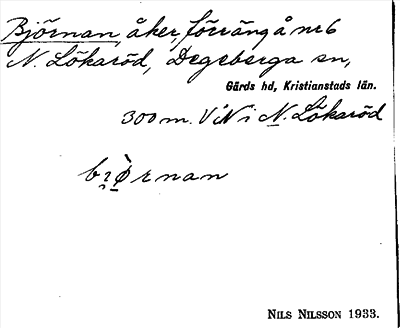 Björnan, åker, förr äng å nr 6
N. Lökaröd, Degeberga sn,
Gärds hd, Kristianstads län.
300 m. V i N i N. Lökaröd
bi̯ø̀rnan
NILS NILSSON 1933.